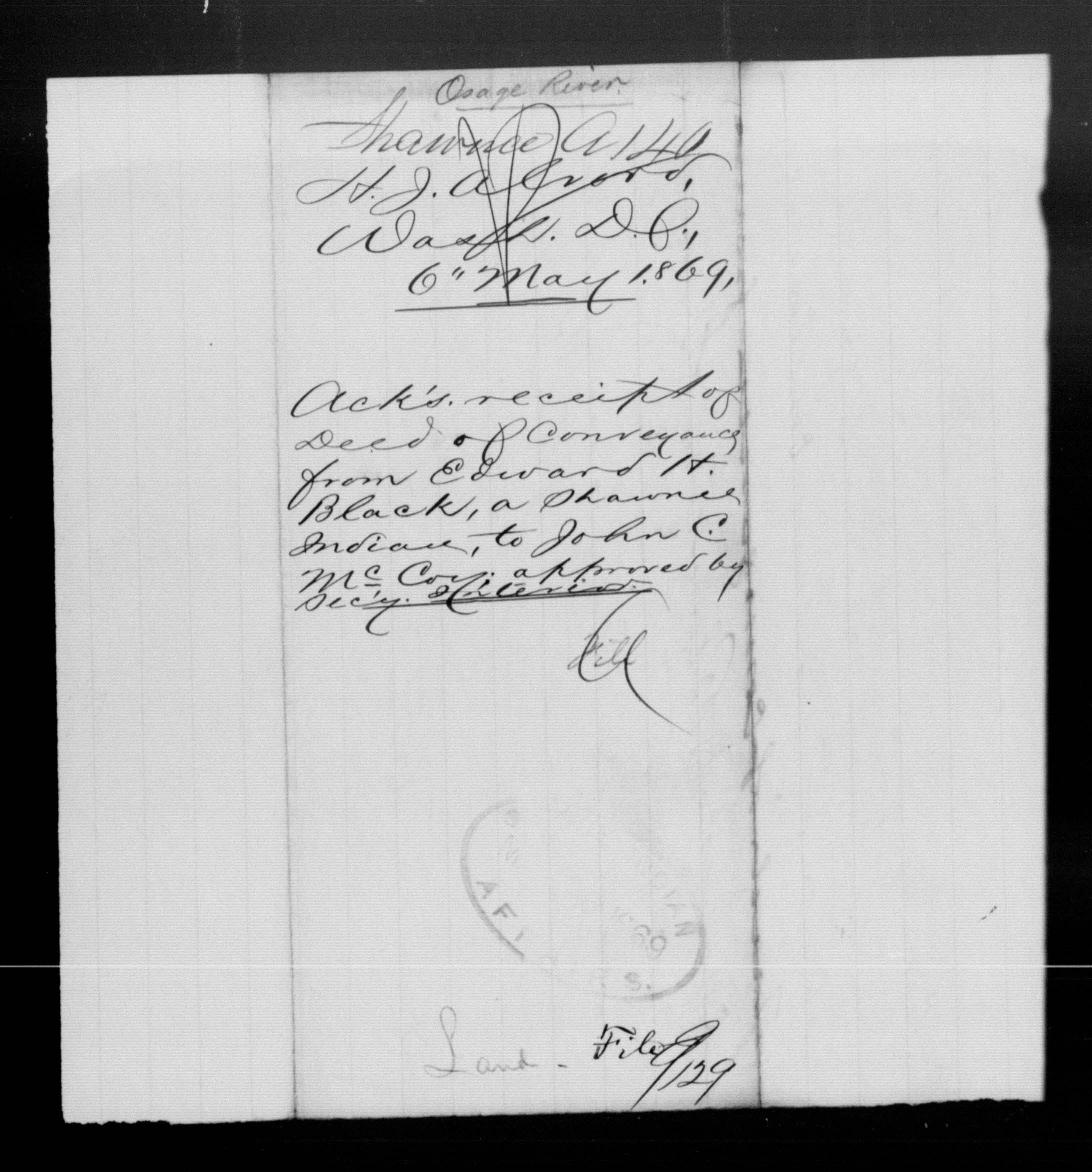 Osage River.
Shawnee A 149
H. J. Alvord,
Wash. D.C.,
6" May 1869,
Ack's. receipt of
Deed of Conveyance
from Edward H.
Black, a Shawnee
Indian, to John C.
Mc Coy: approved by
Sec'y. Interior.
File
INDIAN
69
AF
S.
Land - File
129